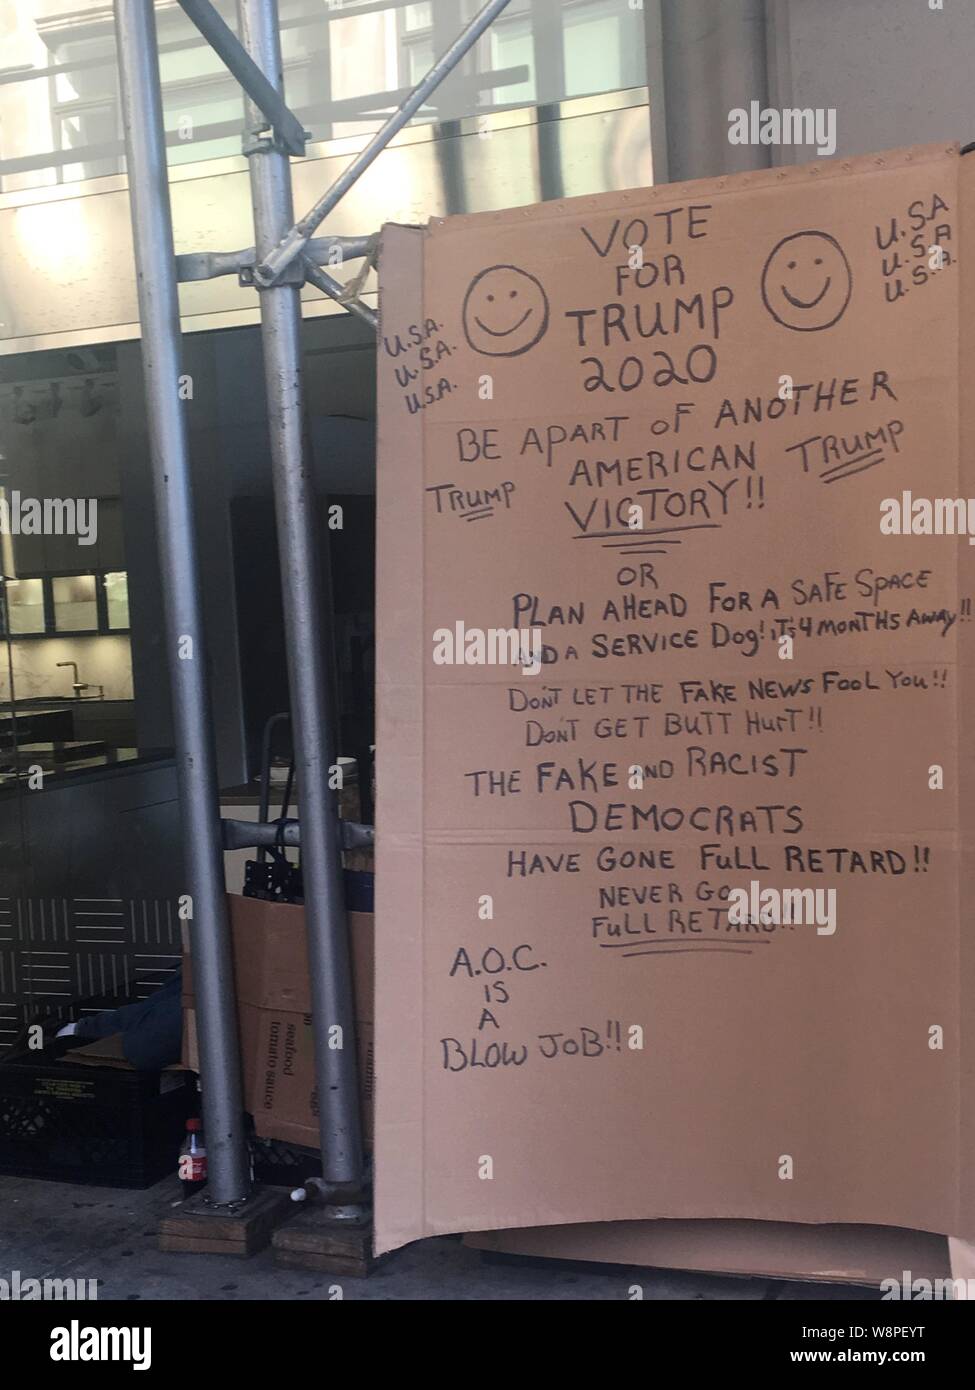 VOTE
FOR
TRUMP
2020
U.S.A.
U.S.A.
U.S.A.
U.S.A
U.S.A
U.S.A.
BE APART OF ANOTHER
AMERICAN
VICTORY!!
TRUMP
TRUMP
OR
PLAN AHEAD FOR A SAFE SPACE
AND A SERVICE DOG! IT'S 4 MONTHS AWAY!!
DON'T LET THE FAKE NEWS FOOL YOU!!
DON'T GET BUTT HURT!!
THE FAKE AND RACIST
DEMOCRATS
HAVE GONE FULL RETARD!!
NEVER GO
FULL RETARD!!
A.O.C.
IS
A
BLOW JOB!!
seafood
tomato sauce
alamy
alamy
alamy
alamy
alamy
alamy
alamy
alamy
Image ID: W8PEYT
www.alamy.com